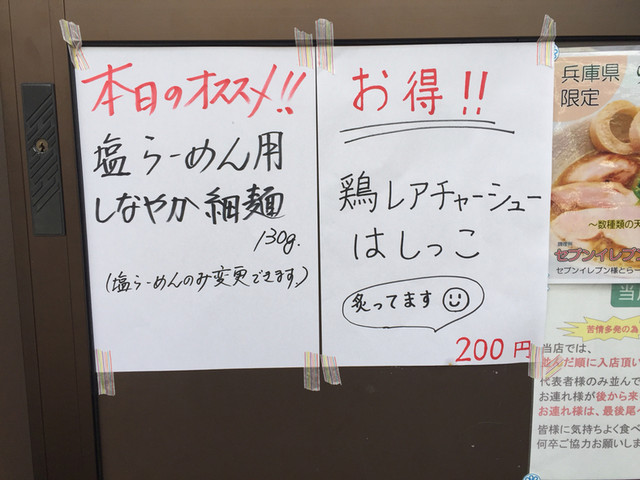 本日のオススメ!!
塩らーめん用
しなやか細麺
130g.
(塩らーめんのみ変更できます。)
お得!!
鶏レアチャーシュー
はしっこ
炙ってます
200円
兵庫県
限定
〜数種類の天
セブンイレブン
セブンイレブン様とら
当
苦情多発の為
当店では、
並んだ順に入店頂い
代表者様のみ並んで
お連れ様が後から来
お連れ様は、最後尾へ
皆様に気持ちよく食べ
何卒ご協力お願いしま